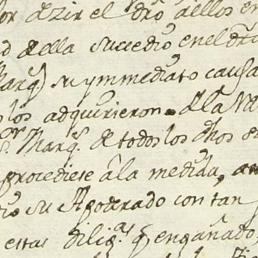 or dezir el dro aellos en
d de ella sucedio en el dro
Marqs) su ymmediato causa
o los adquirieron de la Va
Sor Marqs. de todos los dhos
procediese â la medida,
su Apoderado con tan
estas diligas q engañado,